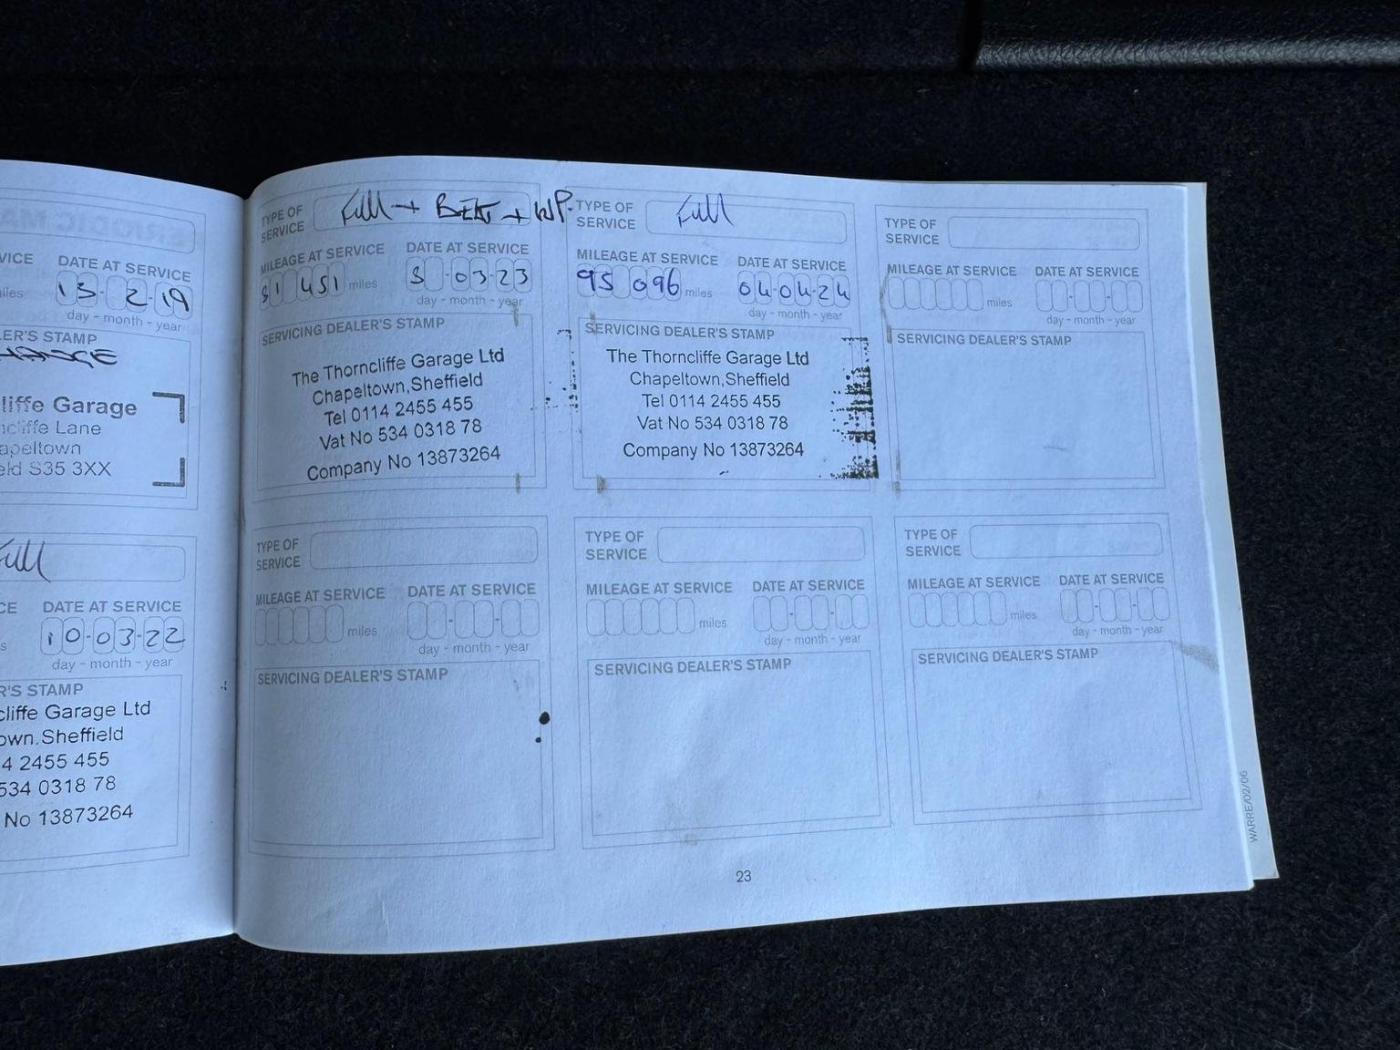 VICE
DATE AT SERVICE
miles
13-2-19
day - month - year
LER'S STAMP
liffe Garage
ncliffe Lane
apeltown
eld S35 3XX
Full
CE
DATE AT SERVICE
s
10-03-22
day - month - year
R'S STAMP
cliffe Garage Ltd
own.Sheffield
4 2455 455
534 0318 78
No 13873264
TYPE OF
SERVICE
Full + Belt + WP.
MILEAGE AT SERVICE
DATE AT SERVICE
81 451 miles
03-23
day - month - year
SERVICING DEALER'S STAMP
The Thorncliffe Garage Ltd
Chapeltown,Sheffield
Tel 0114 2455 455
Vat No 534 0318 78
Company No 13873264
TYPE OF
SERVICE
Full
MILEAGE AT SERVICE
DATE AT SERVICE
95 096 miles
04-04-24
day - month - year
SERVICING DEALER'S STAMP
The Thorncliffe Garage Ltd
Chapeltown,Sheffield
Tel 0114 2455 455
Vat No 534 0318 78
Company No 13873264
TYPE OF
SERVICE
MILEAGE AT SERVICE
DATE AT SERVICE
miles
day - month - year
SERVICING DEALER'S STAMP
TYPE OF
SERVICE
MILEAGE AT SERVICE
DATE AT SERVICE
miles
day - month - year
SERVICING DEALER'S STAMP
TYPE OF
SERVICE
MILEAGE AT SERVICE
DATE AT SERVICE
miles
day - month - year
SERVICING DEALER'S STAMP
TYPE OF
SERVICE
MILEAGE AT SERVICE
DATE AT SERVICE
miles
day - month - year
SERVICING DEALER'S STAMP
23
WARRE/02/06